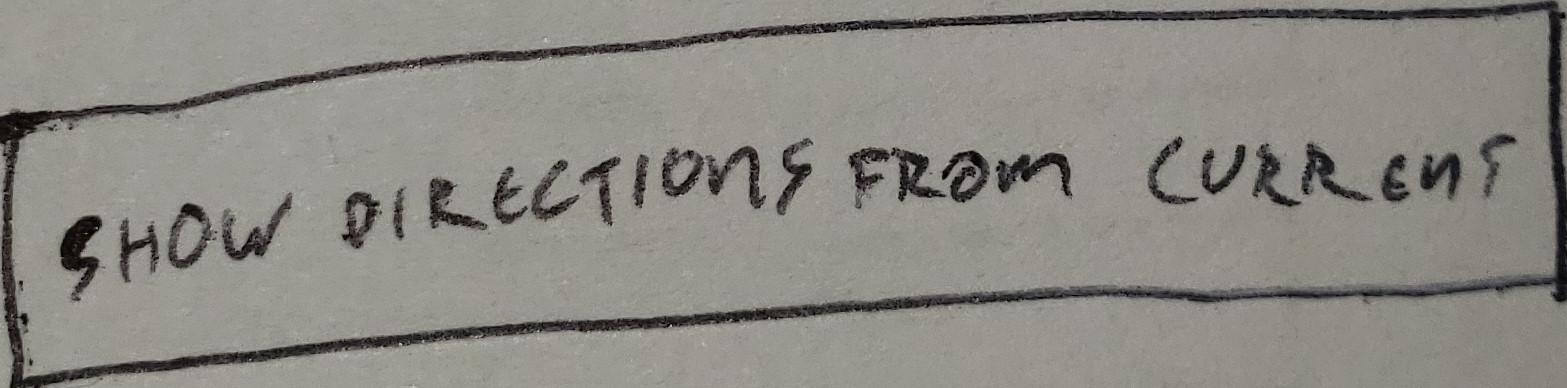 SHOW DIRECTIONS FROM CURRENT